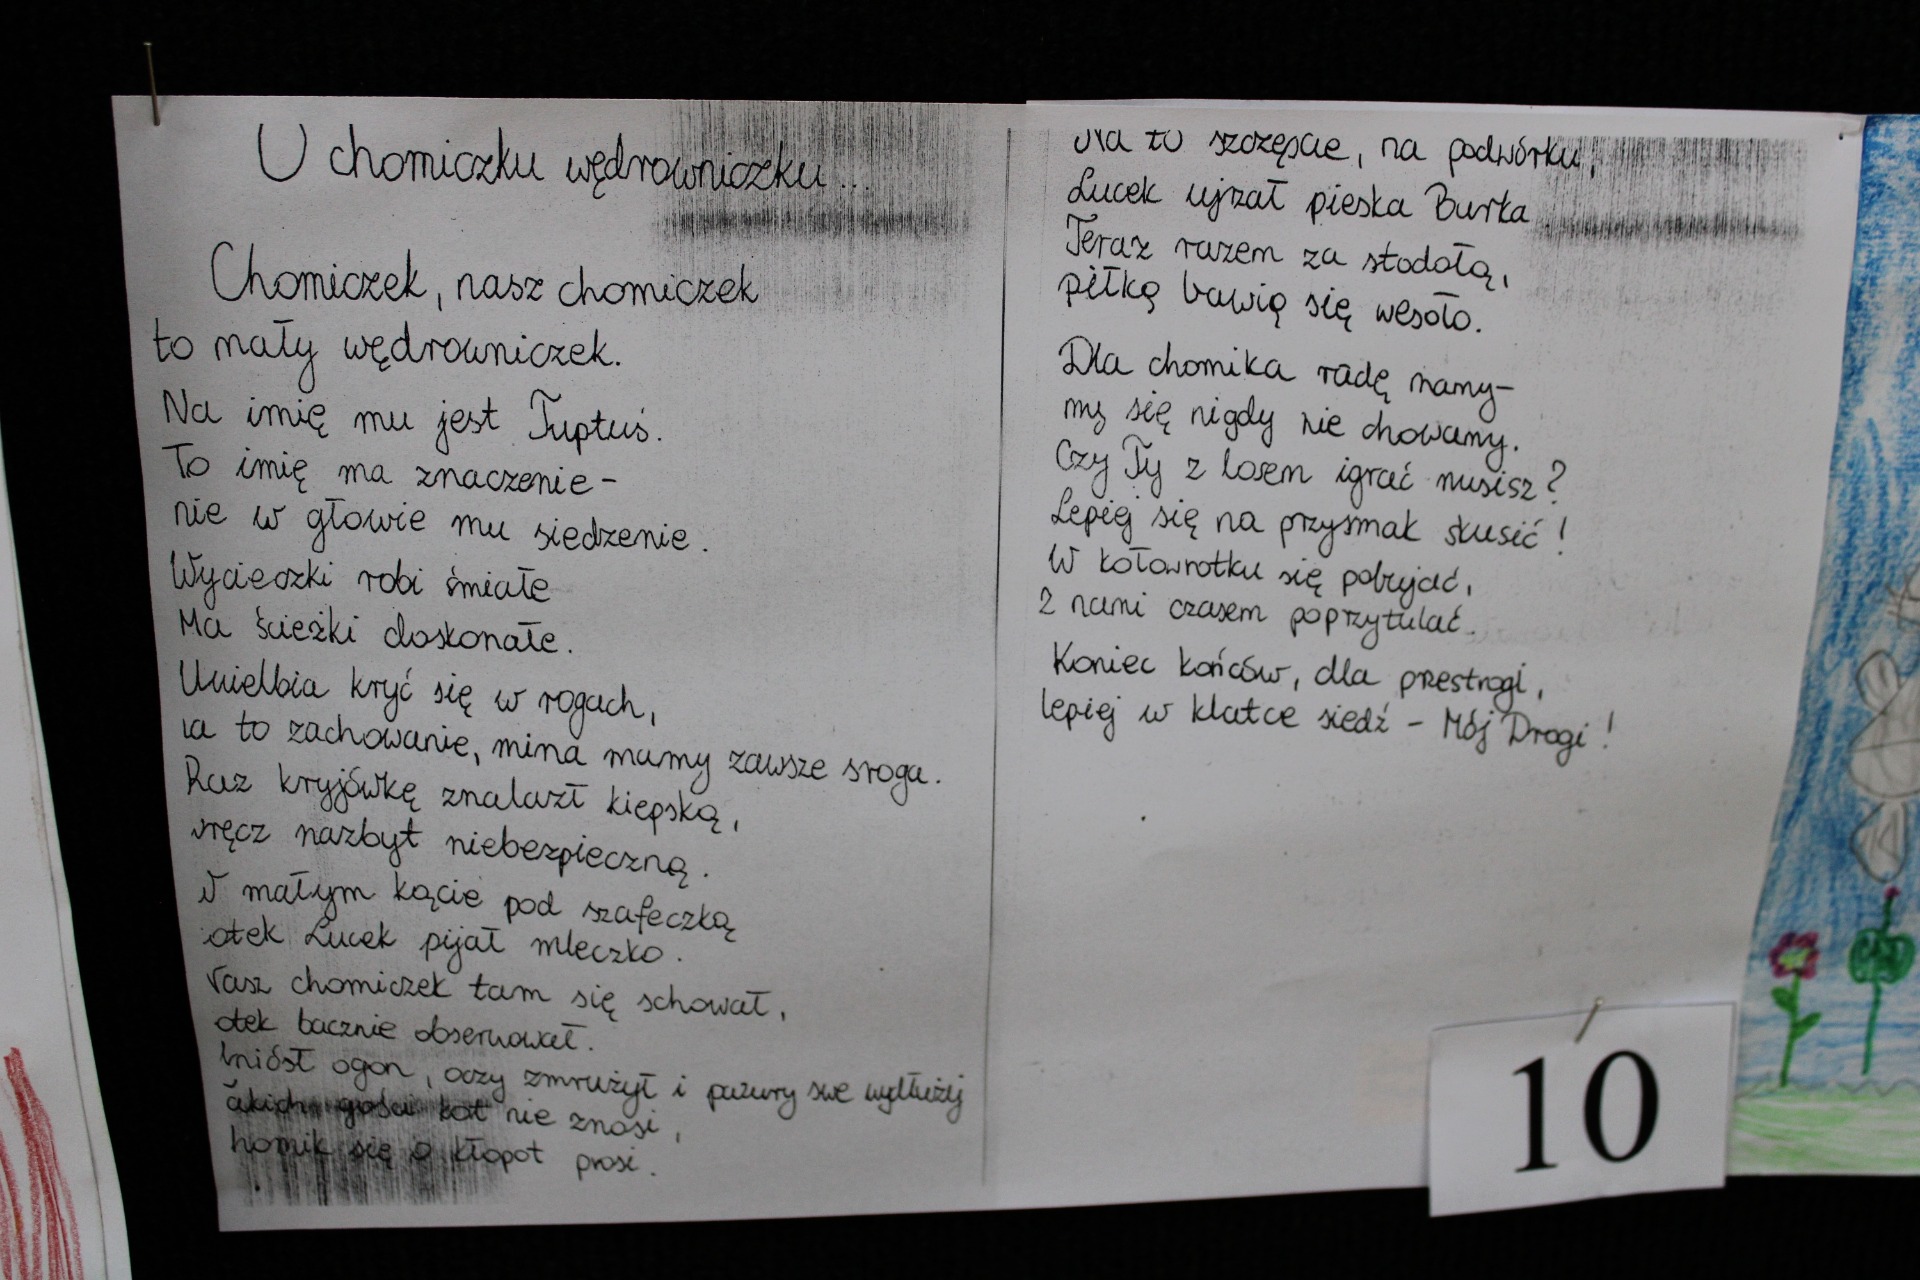 O chomiczku wędrowniczku...
Chomiczek, nasz chomiczek
to mały wędrowniczek.
Na imię mu jest Tuptuś.
To imię ma znaczenie -
nie w głowie mu siedzenie.
Wycieczki robi śmiałe
Ma ścieżki doskonałe.
Uwielbia kryć się w rogach,
na to zachowanie, mina mamy zawsze sroga.
Raz kryjówkę znalazł kiepską,
wręcz nazbyt niebezpieczną.
W małym kącie pod szafeczką
otek Lucek pijał mleczko.
Nasz chomiczek tam się schował,
otek bacznie obserwował.
niósł ogon, oczy zmrużył i pazury swe wydłużył
akich gości kot nie znosi,
homik się o kłopot prosi.
Na to szczęście, na podwórku,
Lucek ujrzał pieska Burka
Teraz razem za stodołą,
piłką bawią się wesoło.
Dla chomika radę mamy -
my się nigdy nie chowamy.
Czy Ty z losem igrać musisz?
Lepiej się na przysmak skusić!
W kołowrotku się pobujać,
z nami czasem poprzytulać.
Koniec końców, dla przestrogi,
lepiej w klatce siedź - Mój Drogi!
10